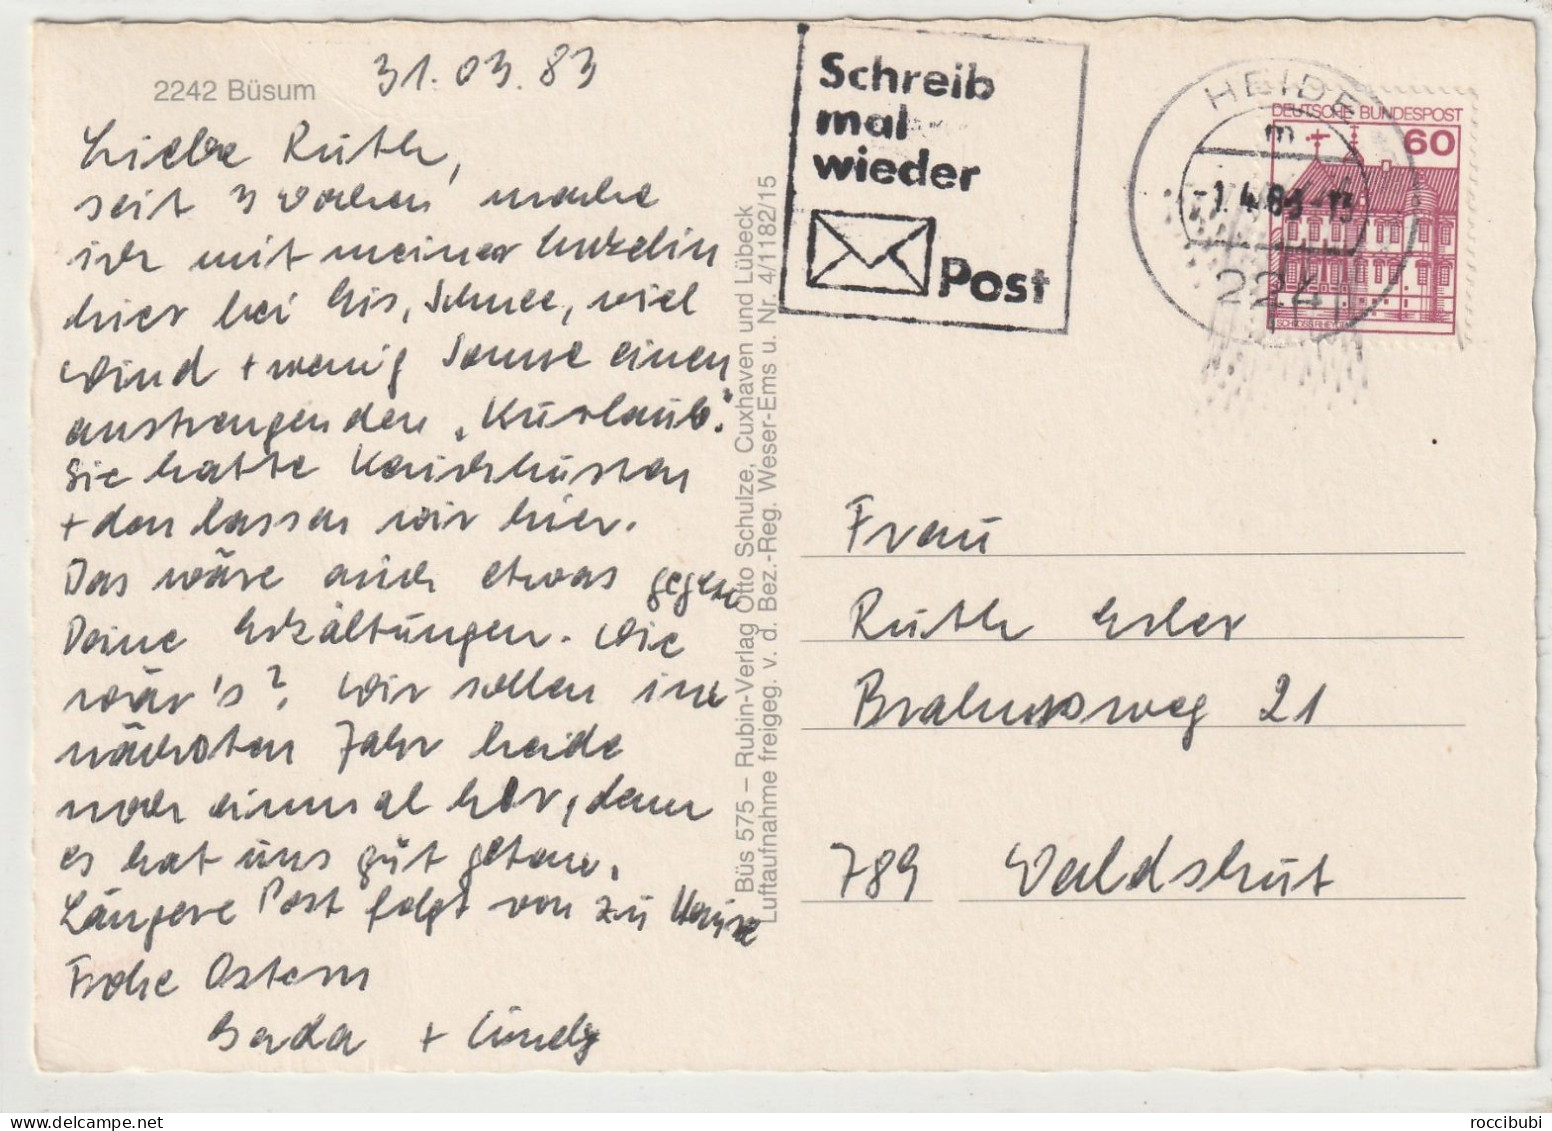 2242 Büsum
31.03.83
Liebe Ruth,
seit 3 Wochen mache
ich mit meiner Enkelin
hier bei Eis, Schnee, viel
Wind + wenig Sonne einen
anstrengenden „Kurlaub".
Sie hatte Keuchhusten
+ den lassen wir hier.
Das wäre auch etwas gegen
Deine Erkältungen. Wie
wär's? Wir sollen im
nächsten Jahr beide
noch einmal her, denn
es hat uns gut getan.
Längere Post folgt von zu Hause
Frohe Ostern
Gerda + Cindy
Büs 575 – Rubin-Verlag Otto Schulze, Cuxhaven und Lübeck
Luftaufnahme freigeg. v. d. Bez.-Reg. Weser-Ems u. Nr. 4/1182/15
Schreib
mal
wieder
Post
HEIDE
m
-1.4.83-13
2240
DEUTSCHE BUNDESPOST
60
Frau
Ruth Erler
Brahmsweg 21
789 Waldshut
roccibubi